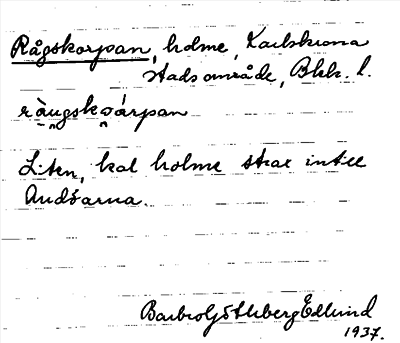 Rågskorpan, holme, Karlskrona
stadsområde, Blek. l.
ràugskɔárpan
Liten, kal holme strax intill
Andöarna.
Barbro Göthberg Edlund
1937.